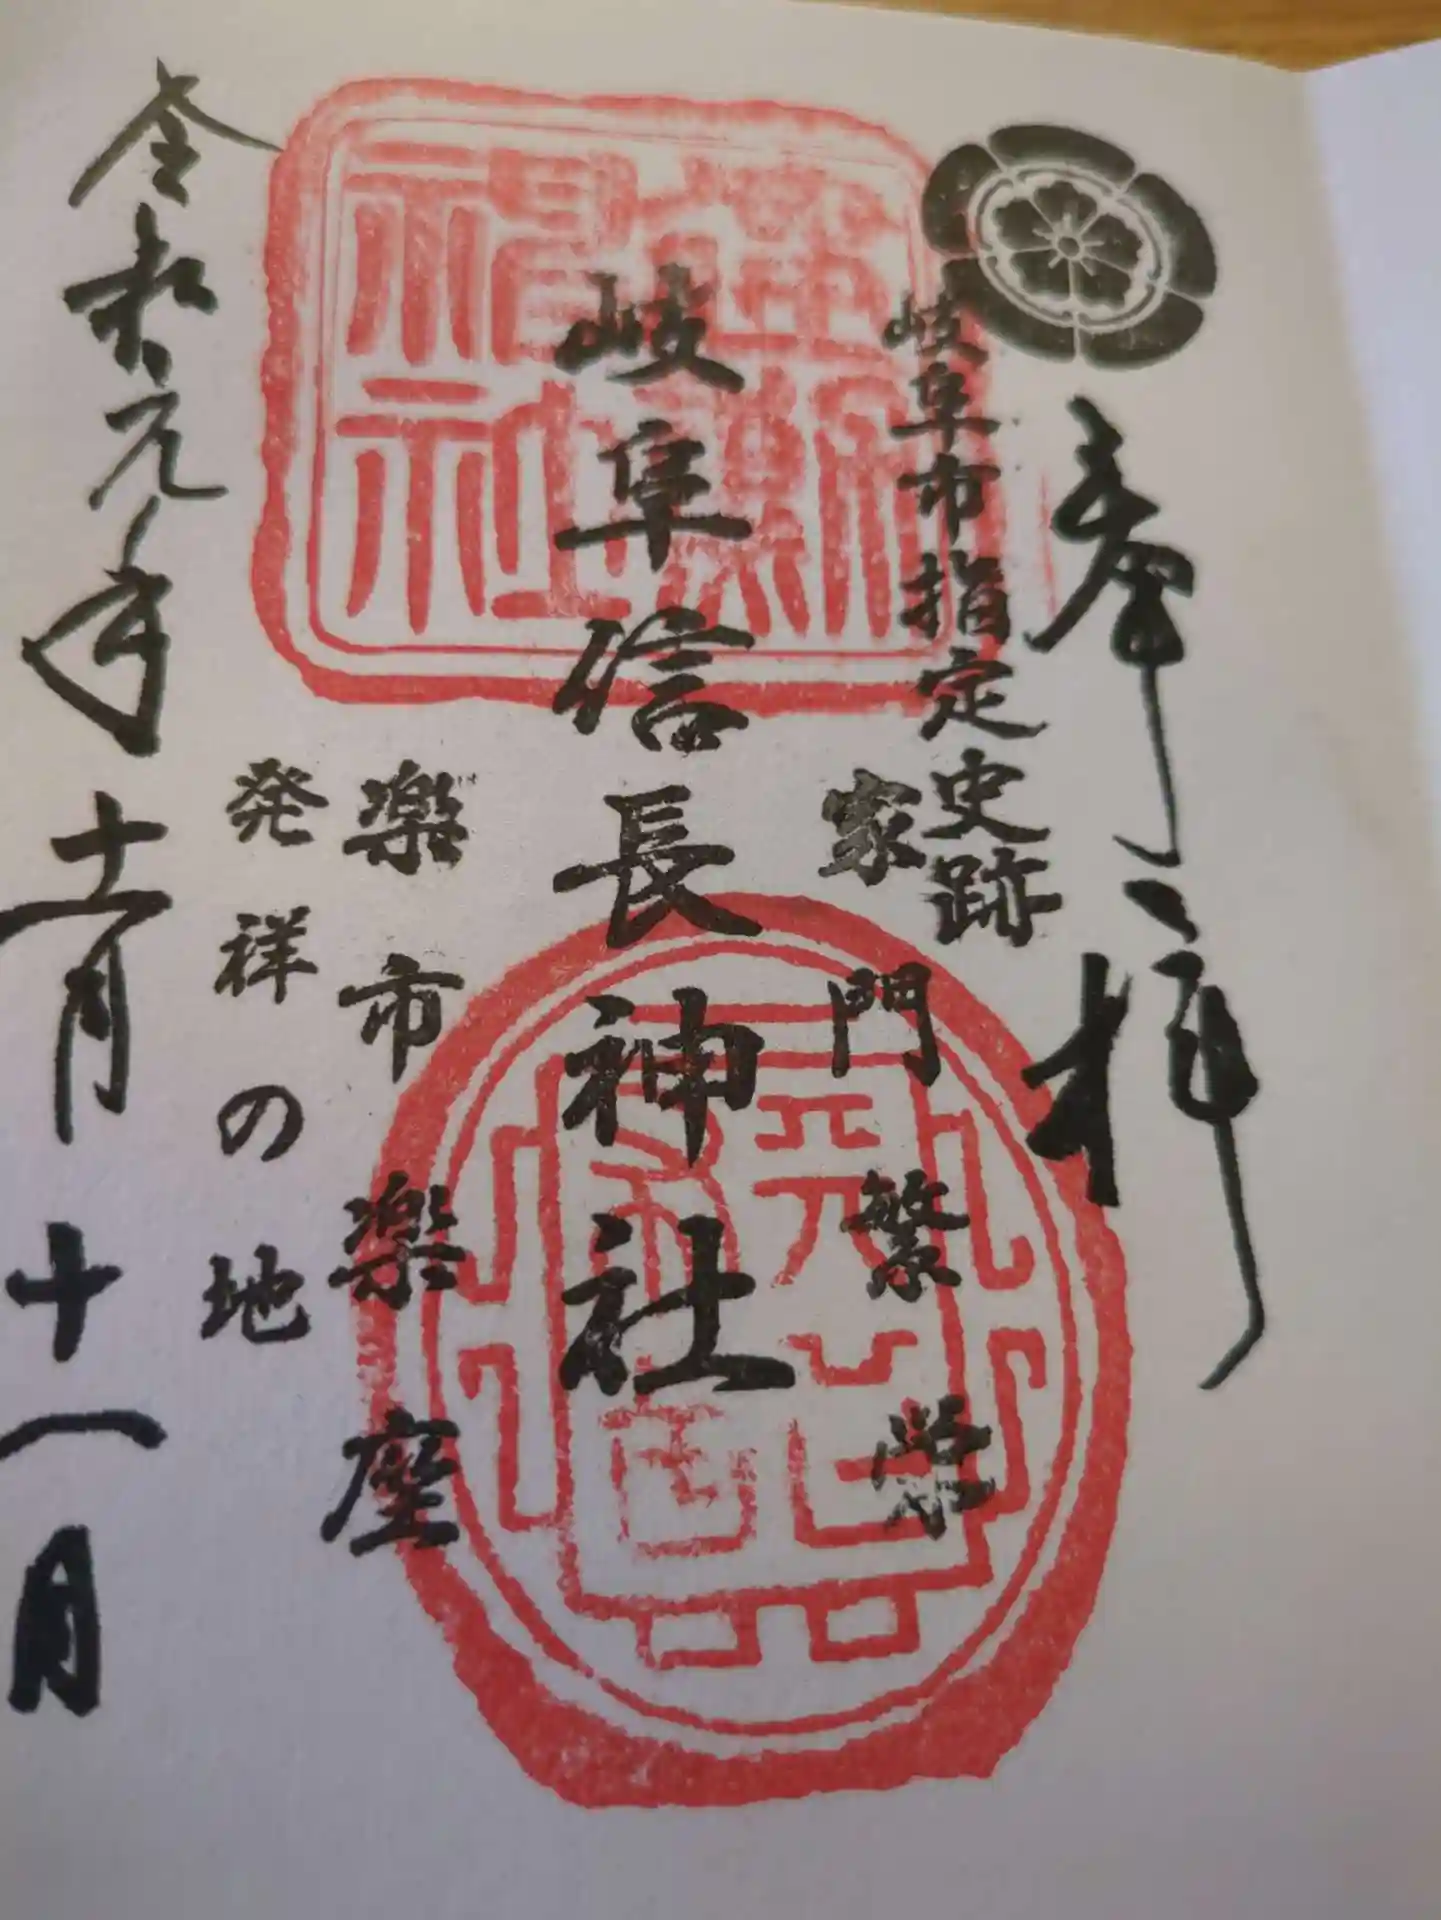 奉拝
岐阜市指定史跡
家門繁栄
岐阜信長神社
神社
楽市楽座
発祥の地
令和元年十一月十一日